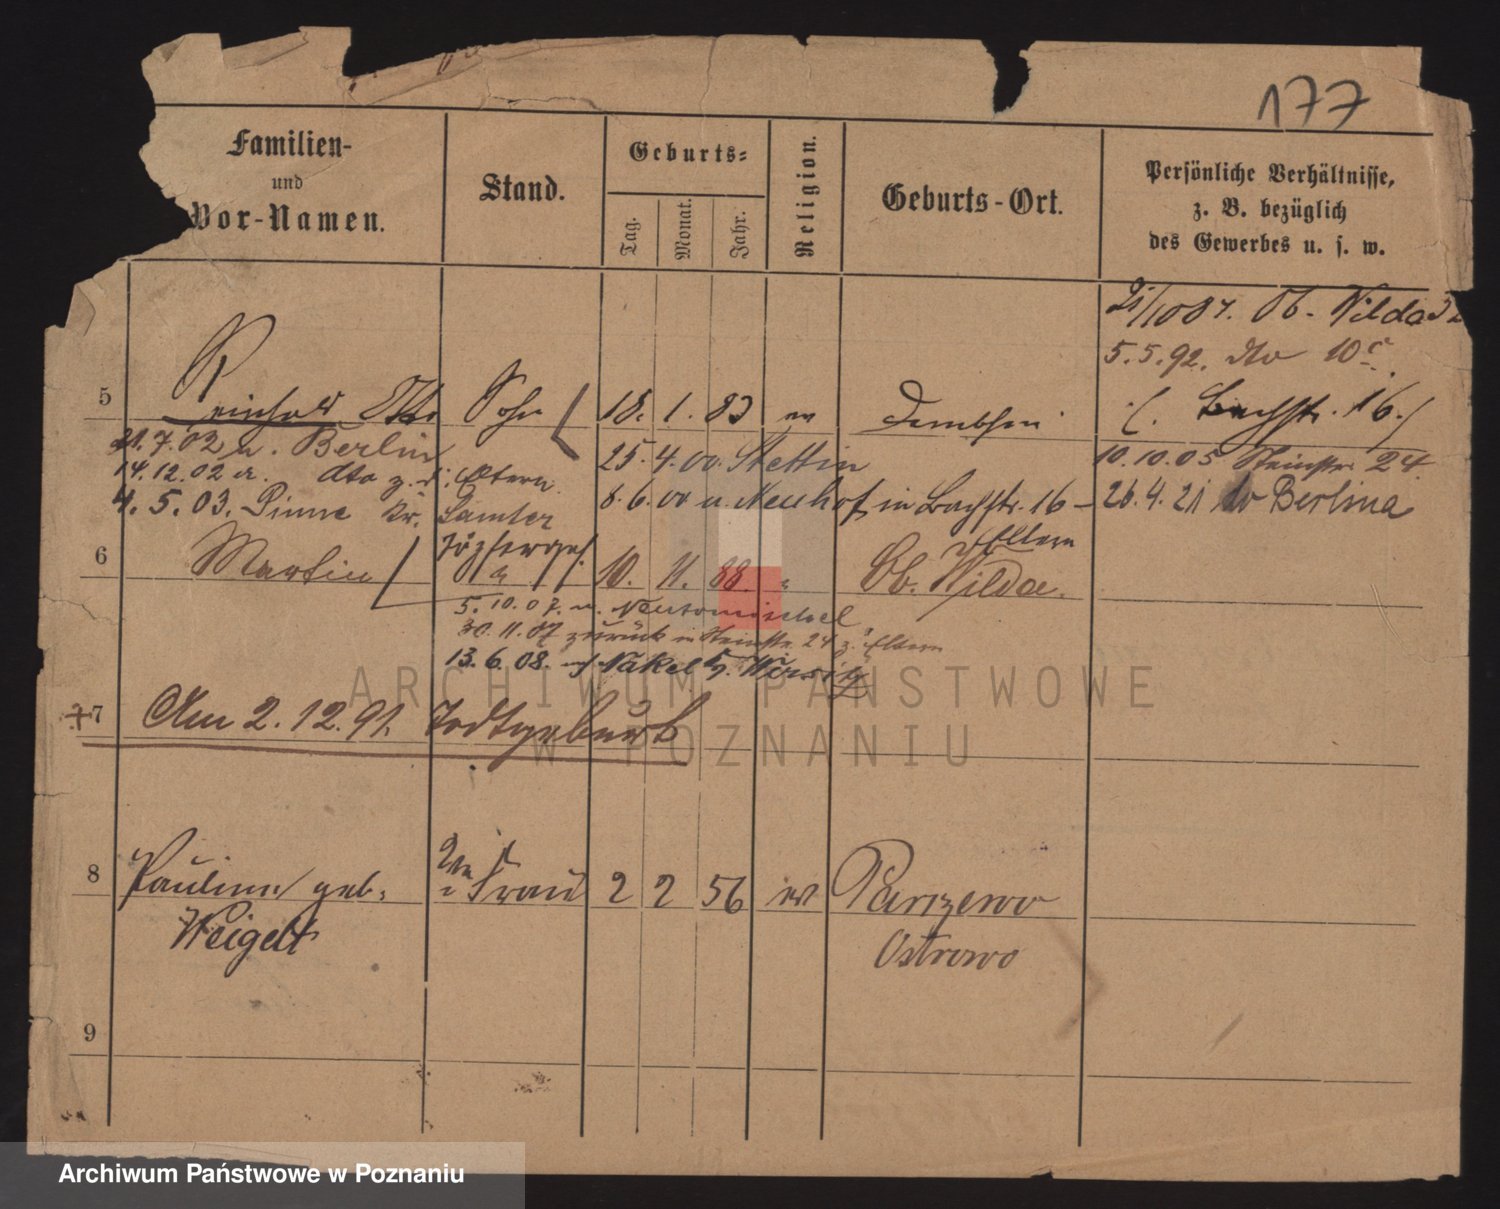 177
Familien-
und
Vor-Namen.
Stand.
Geburts-
Tag.
Monat.
Jahr.
Religion.
Geburts-Ort.
Persönliche Verhältnisse,
z. B. bezüglich
des Gewerbes u. s. w.
21/10 87. Ob. Wilda 32
5.5.92. dto 10c.
5 Reinhold Otto Sohn 18. 1. 83 ev Dembsen (Bachstr. 16.)
21.7.02 n. Berlin 25.4.00. Stettin 10.10.05 Steinstr. 24
14.12.02 v. dto z. d. Eltern 8.6.00 v. Neuhof, in Bachstr. 16 - 26.4.21 Berlin
4.5.03. Pinne Kr. Samter Eltern
6 Martin 10. 11. 88. Ob. Wilda.
5.10.07. n. Neutomischel
30.11.07 zurück in Steinstr. 24 z. Eltern
13.6.08. Nakel Kr. Wirsitz
+7 Am 2.12.91. Todtgeburt
8 Pauline geb. 2te Frau 2 2 56 ev Parzewo
Weigelt Ostrowo
9
ARCHIWUM PAŃSTWOWE
W POZNANIU
Archiwum Państwowe w Poznaniu